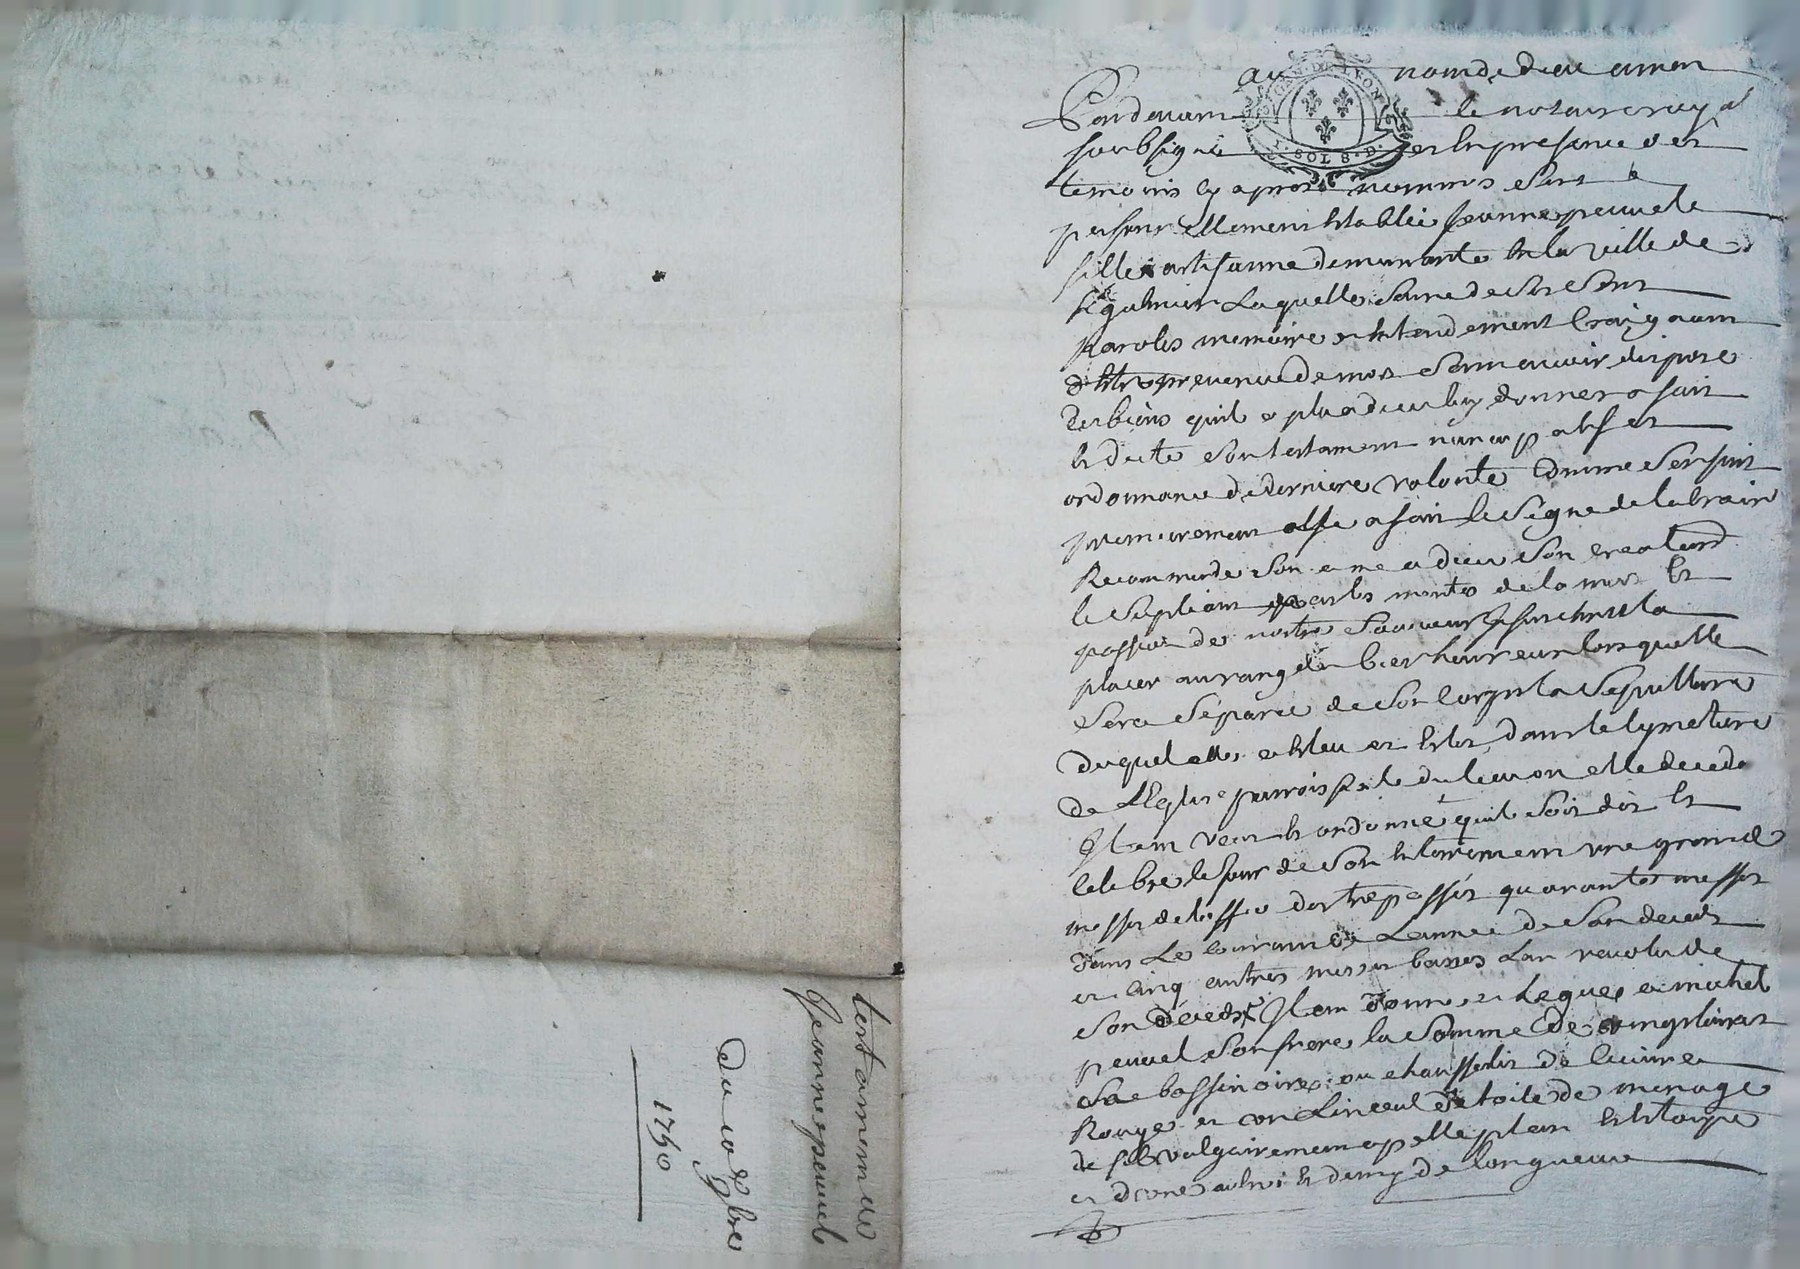 au nom de dieu amen
Pardevant le notaire royal
soubsigné et en presence des
temoins cy apres nommes s'est
personellement establie Jeanne peuvele
fille artisanne demeurante en la ville de
st galmier laquelle saine de ses sens
paroles memoire et entendement craignant
d'estre prevenue de mort sans avoir dispose
des biens quil a plu a dieu luy donner a fait
et dicte son testament nuncupatif et
ordonnance de derniere volonte comme sensuit
premierement elle a fait le signe de la croix
Recommande son ame a dieu son createur
le supliant par les merites de la mort et
passion de nostre sauveur Jesus christ la
placer au rang des bien heureux lors quelle
sera séparée de son corps la sepulture
duquel elle a esleu et eslit dans le cymetiere
de l'Eglise parroissiale du lieu ou elle decedera
Item veut et ordonne quil soit dit et
celebre le jour de son enterrement une grande
messe de l'office des trepassés quarante messes
dans le courant de l'année de son decedz
et cinq autres messes basses l'an revolu de
son décedz Item donne et legue a michel
peuvel son frere la somme de vingt livres
sa bassinoire ou chausselit de cuivre
Rouge et un linceul de toile de menage
de vulgairement apelle plein
et d'une aulne et demy de longueur
testament de
Jeanne peuvel
du 10e 9bre
1750
GEN. DE LYON
1. SOL 8. D.